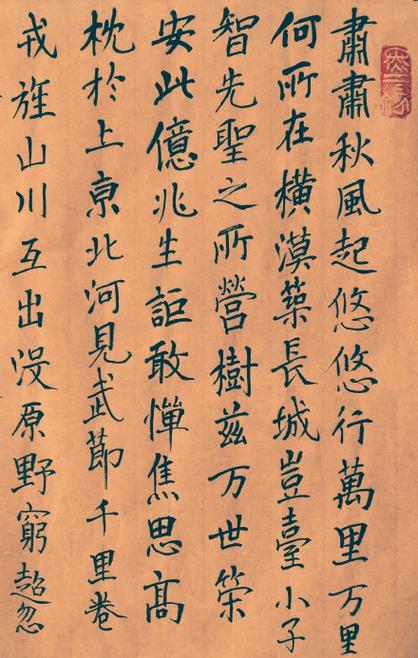 肅肅秋風起悠悠行萬里万里
何所在橫漠築長城豈臺小子
智先聖之所營樹茲万世策
安此億兆生詎敢憚焦思高
枕於上亰北河見武節千里卷
戎旌山川互出沒原野窮超忽